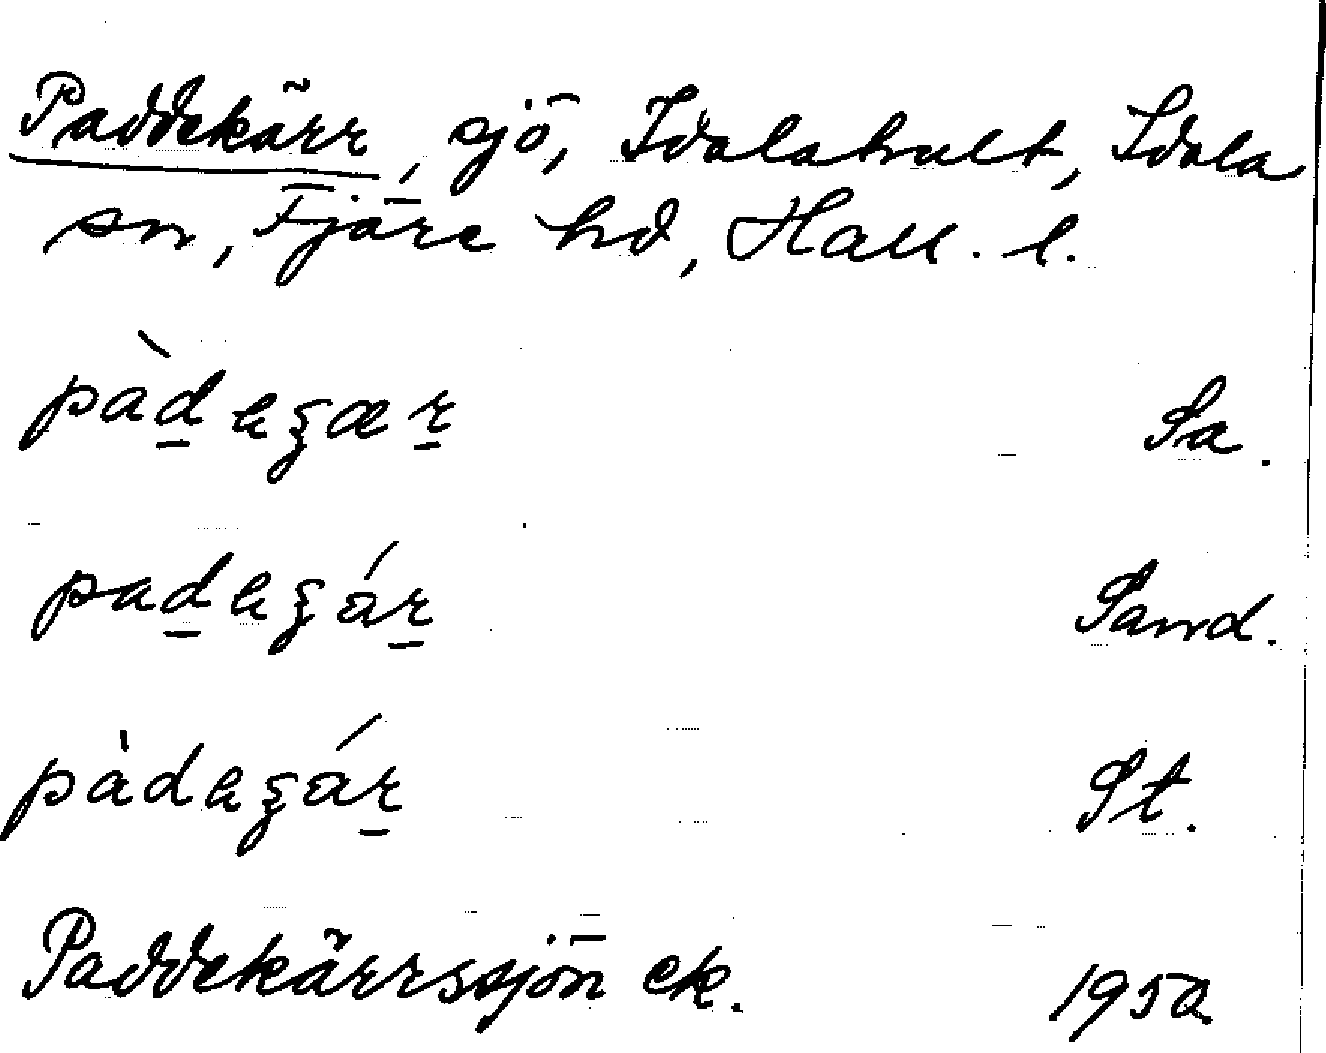 Paddekärr, sjö, Idalahult, Idala
sn, Fjäre hd, Hall. l.
pàd̲eʒær̲ Sa.
pad̲eʒár̲ Sand.
pàdeʒár̲ St.
Paddekärrssjön ek. 1950